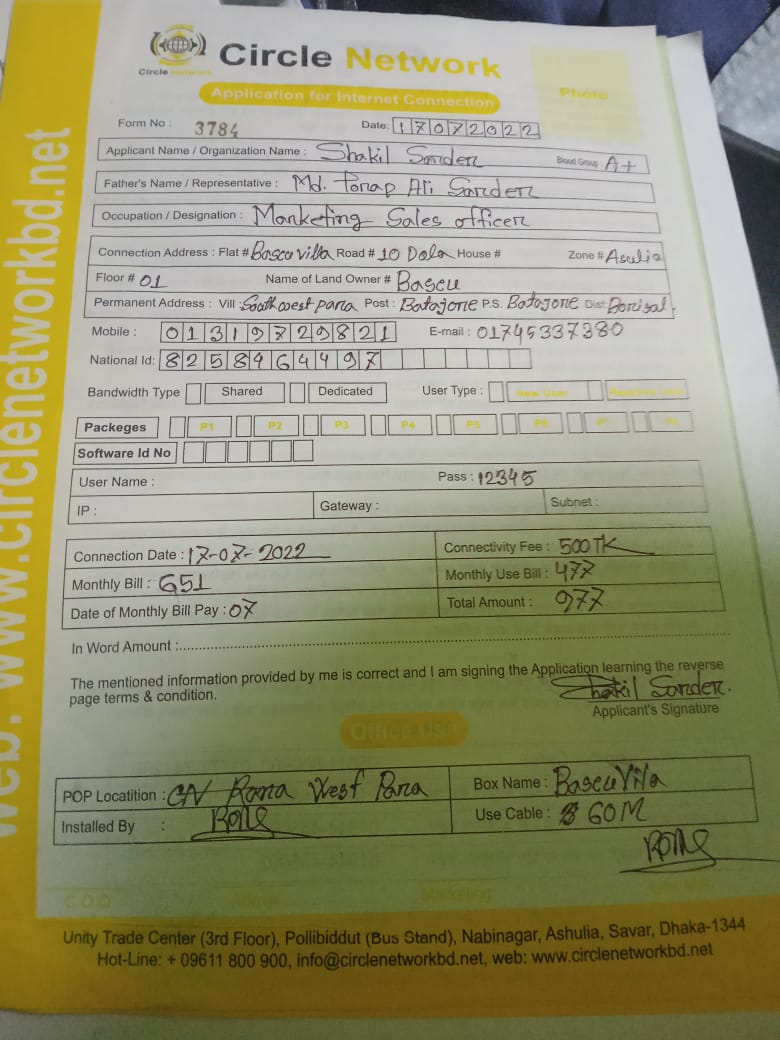 Circle Network
Circle Network
Application for Internet Connection
Photo
Form No : 3784 Date: 17072022
Applicant Name / Organization Name : Shakil Sarder Blood Group A+
Father's Name / Representative : Md. Torap Ali Sarder
Occupation / Designation : Marketing Sales officer
Connection Address : Flat # Bascu villa Road # 10 Dala House # Zone # Asulia
Floor # 01 Name of Land Owner # Bascu
Permanent Address : Vill : South west para Post : Batajore P.S. Batajore Dist Borisal.
Mobile : 01319729821 E-mail : 01745337380
National Id: 8258464497
Bandwidth Type Shared Dedicated User Type : New User
Packeges P1 P2 P3 P4 P5 P6 P7 P8
Software Id No
User Name : Pass : 12345
IP : Gateway : Subnet :
Connection Date : 17-07-2022 Connectivity Fee : 500TK
Monthly Bill : 651 Monthly Use Bill : 477
Date of Monthly Bill Pay : 07 Total Amount : 977
In Word Amount :
The mentioned information provided by me is correct and I am signing the Application learning the reverse
page terms & condition.
Shakil Sarder.
Applicant's Signature
Office Use
POP Locatition : CN Rana West Para Box Name : Bascu Vila
Installed By : Use Cable : 60M
C.O.O Admin Marketing
Unity Trade Center (3rd Floor), Pollibiddut (Bus Stand), Nabinagar, Ashulia, Savar, Dhaka-1344
Hot-Line: + 09611 800 900, info@circlenetworkbd.net, web: www.circlenetworkbd.net
web: www.circlenetworkbd.net